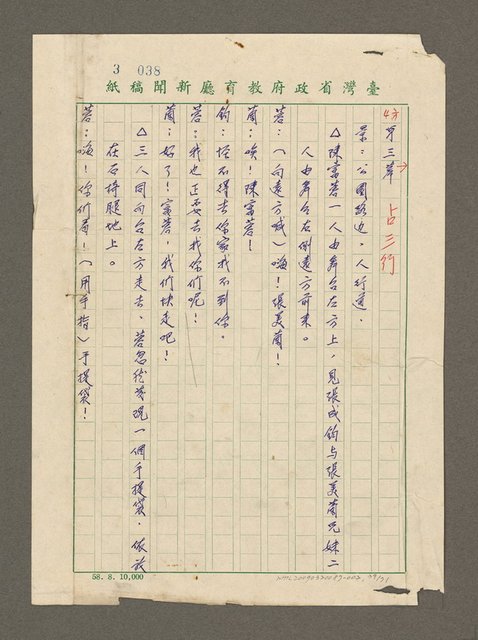 3 038
臺灣省政府教育廳新聞稿紙
4方
第三幕 占三行
景：公園路边，人行道．
△陳富蓉一人由舞台左方上，見張成鈞与張美蘭兄妹二
人由舞台右側遠方前来。
蓉：（向遠方喊）嗨！張美蘭！
蘭：唉！陳富蓉！
鈞：怪不得去你家找不到你。
蓉：我也正要去找你们呢！
蘭：好了！富蓉，我們快走吧！
△三人同向台左方走去．蓉忽然發現一個手提袋．依放
在石椅腿地上。
蓉：嗨！你们看！（用手指）手提袋！
58. 8. 10,000
NMTL20090320087-002